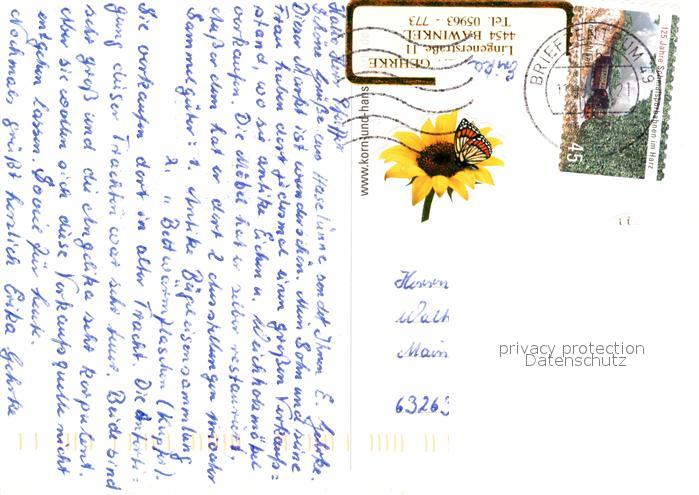 Hallo Herr Griffe
Schöne Grüße aus Haselünne sendet Ihnen E. Gehrke.
Dieser Markt ist wunderschön. Mein Sohn und seine
Frau haben dort jedesmal einen großen Verkaufs=
stand wo sie antike Eichen u. Weichholzmöbel
verkaufen. Die Möbel hat er selber restauriert.
Außerdem hat er dort 2 Ausstellungen
Sammelgüter: 1. Antike Bügeleisensammlung
2. " Bettwärmflaschen (Kupfer).
Sie verkaufen dort in alter Tracht. Die Anferti=
gung dieser Trachten war sehr teuer. Beide sind
sehr groß und die Angelika sehr korpulent.
Aber sie wollen sich diese Verkaufsquelle nicht
entgehen lassen. Soviel für heute.
Nochmals grüßt herzlich Erika Gehrke
GEHRKE
Lingenerstraße 11
4454 BAWINKEL
Tel. 05963 - 773
www.korn-und-hans
BRIEFZENTRUM 49
21
125 Jahre Schmalspurbahnen im Harz
45
Herrn
Walt
Main
63263
privacy protection
Datenschutz